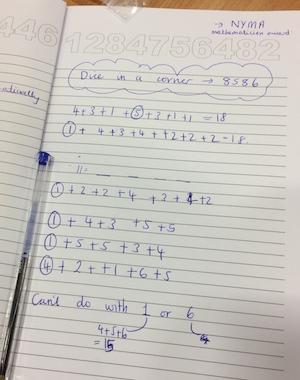 → NYMA
mathematician award
446 1284756482
Dice in a corner → 8586
4+3+1 +5+3+1+1 =18
1 + 4+3+4++2+2+2=18.
11 = _ _ _ _ _
1 +2+2+4 +3+4+2
1 +4+3 +5+5
1 +5+5+3+4
4 +2++1+6+5
Can't do with 1 or 6
4+5+6
=15